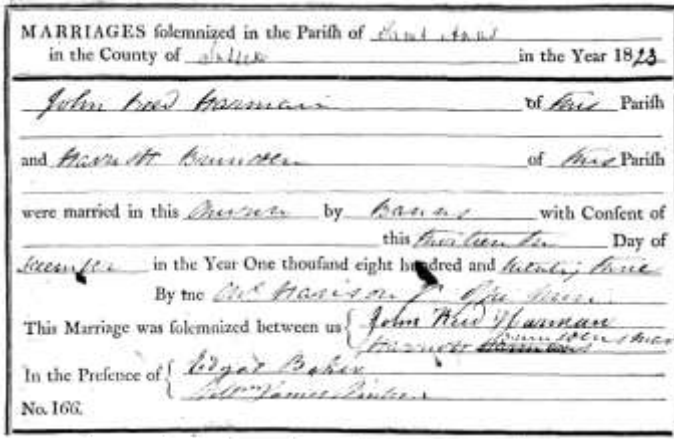 MARRIAGES solemnized in the Parish of Saint Anns
in the County of Sussex in the Year 1823
John Reed Harman of this Parish
and Harriott Brunsden of this Parish
were married in this Church by Banns with Consent of
this thirteenth Day of
December in the Year One thousand eight hundred and twenty three
By me
This Marriage was solemnized between us { John Reed Harman
Harriott
In the Presence of { Edgar Baker
James
No. 166.